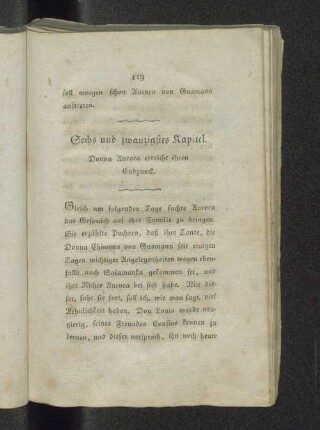 119
soll morgen schon Aurora von Gusmann
auftreten.
Sechs und zwanzigstes Kapitel.
Donna Aurora erreicht ihren
Endzweck.
Gleich am folgenden Tage suchte Aurora
das Gespräch auf ihre Familie zu bringen.
Sie erzählte Pacheco, daß ihre Tante, die
Donna Chimena von Gusmann seit einigen
Tagen wichtiger Angelegenheiten wegen eben-
falls nach Salamanka gekommen sei, und
ihre Nichte Aurora bei sich habe. Mit die-
ser, fuhr sie fort, soll ich, wie man sagt, viel
Aehnlichkeit haben. Don Louis wurde neu-
gierig, seines Freundes Cousine kennen zu
lernen, und dieser versprach, ihn noch heute